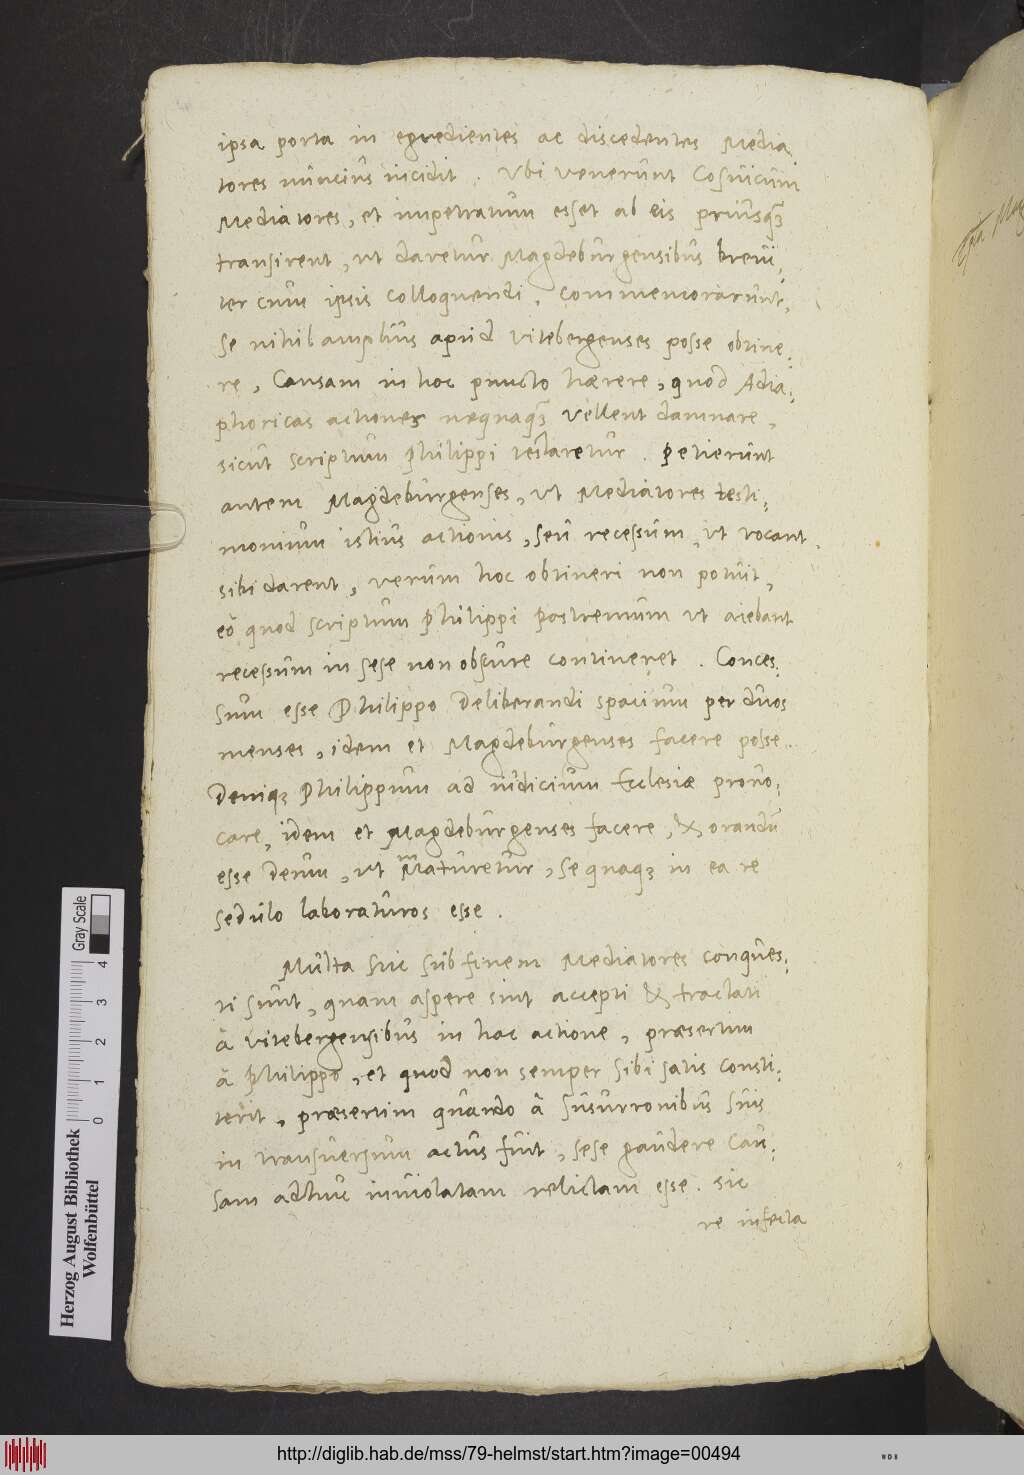 ipsa porta in egredientes ac discedentes Media
tores nuncius incidit. Ubi venerunt Cosuicum
Mediatores, et impetratum esset ab eis priusqȝ
transirent, ut daretur Magdeburgensibus brevi,
ter cum ipsis colloquendi, commemorarunt,
se nihil amplius apud Vitebergenses posse obtine,
re, Causam in hoc puncto hærere, quod Adia,
phoricas actiones nequaqȝ vellent damnare,
sicut scriptum Philippi testaretur. Petierunt
autem Magdeburgenses, ut Mediatores testi,
monium istius actionis, seu recessum, ut vocant,
sibi darent, verum hoc obtineri non potuit,
eò quod scriptum Philippi postremum ut aiebant
recessum in sese non obscure contineret. Conces,
sum esse Philippo deliberandi spacium per duos
menses, idem et Magdeburgenses facere posse.
Deniqȝ Philippum ad iudicium Ecclesiæ provo,
care, idem et Magdeburgenses facere, & orandū
esse Deum, ut maturetur, se quaqȝ in ea re
sedulo laboraturos esse.
Multa hic sub finem Mediatores conques,
ti sunt, quam aspere sint accepti & tractati
à Vitebergensibus in hac actione, præsertim
à Philippo, et quod non semper sibi satis consti,
terit, præsertim quando à susurronibus suis
in transversum actus fuit, sese gaudere cau,
sam adhuc inviolatam relictam esse. sic
re infecta
Gray Scale
0 1 2 3 4
Herzog August Bibliothek
Wolfenbüttel
http://diglib.hab.de/mss/79-helmst/start.htm?image=00494
WDB